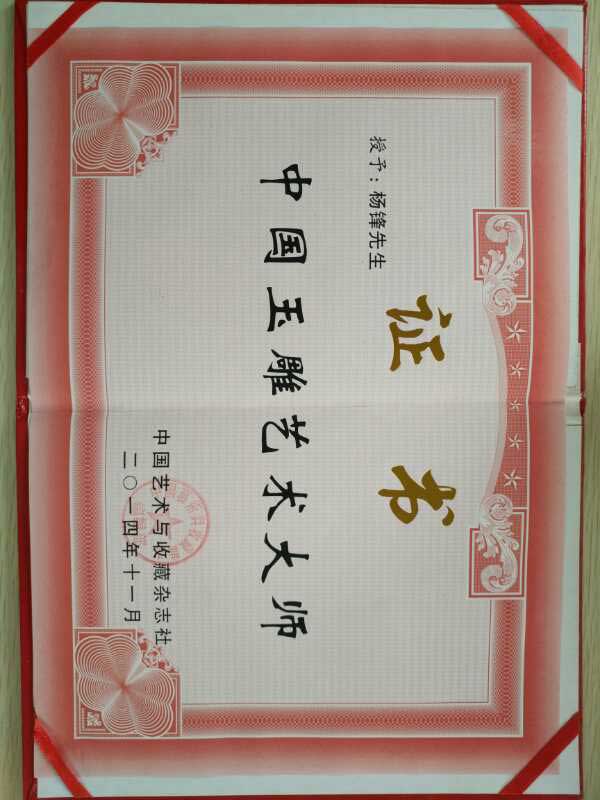 证书
授予：杨锋先生
中国玉雕艺术大师
中国艺术与收藏杂志社
二〇一四年十一月